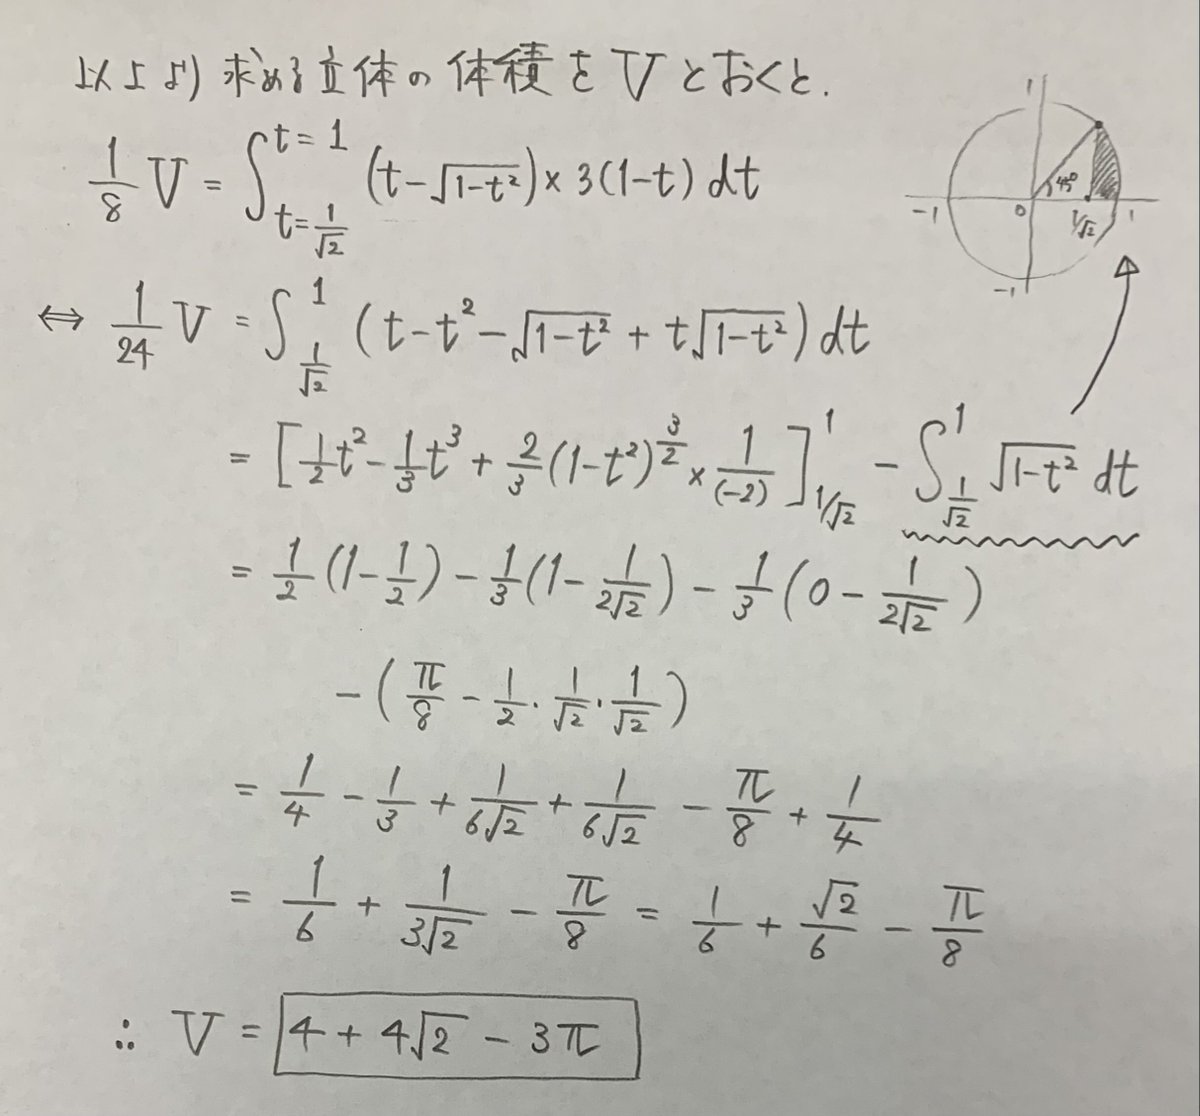 以上より求める立体の体積をVとおくと.
1/8 V = ∫_{t=1/√2}^{t=1} (t-√(1-t²))×3(1-t) dt
⇔ 1/24 V = ∫_{1/√2}^{1} (t-t²-√(1-t²)+t√(1-t²)) dt
= [1/2 t² - 1/3 t³ + 2/3 (1-t²)^{3/2} × 1/(-2)]_{1/√2}^{1} - ∫_{1/√2}^{1} √(1-t²) dt
= 1/2 (1-1/2) - 1/3 (1-1/(2√2)) - 1/3 (0-1/(2√2))
-(π/8 - 1/2・1/√2・1/√2)
= 1/4 - 1/3 + 1/(6√2) + 1/(6√2) - π/8 + 1/4
= 1/6 + 1/(3√2) - π/8 = 1/6 + √2/6 - π/8
∴ V = 4+4√2-3π
1
45°
-1
0
1/√2
1
-1